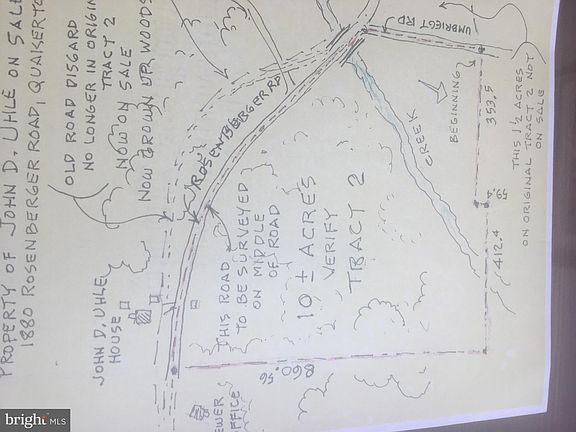 PROPERTY OF JOHN D. UHLE ON SALE
1880 ROSENBERGER ROAD, QUAKERTO
OLD ROAD DISGARD
NO LONGER IN ORIGIN
TRACT 2
NOW ON
SALE
NOW GROWN UP, WOODS
ROSENBERGER RD
UMBRIEGT RD
JOHN D. UHLE
HOUSE
THIS ROAD
TO BE SURVEYED
ON MIDDLE
OF ROAD
10 ± ACRES
VERIFY
TRACT 2
CREEK
BEGINNING
353.5
59.4
412.4
THIS 1 1/2 ACRES
ON ORIGINAL TRACT 2 NOT
ON SALE
860.56
EWER
FFICE
bright MLS